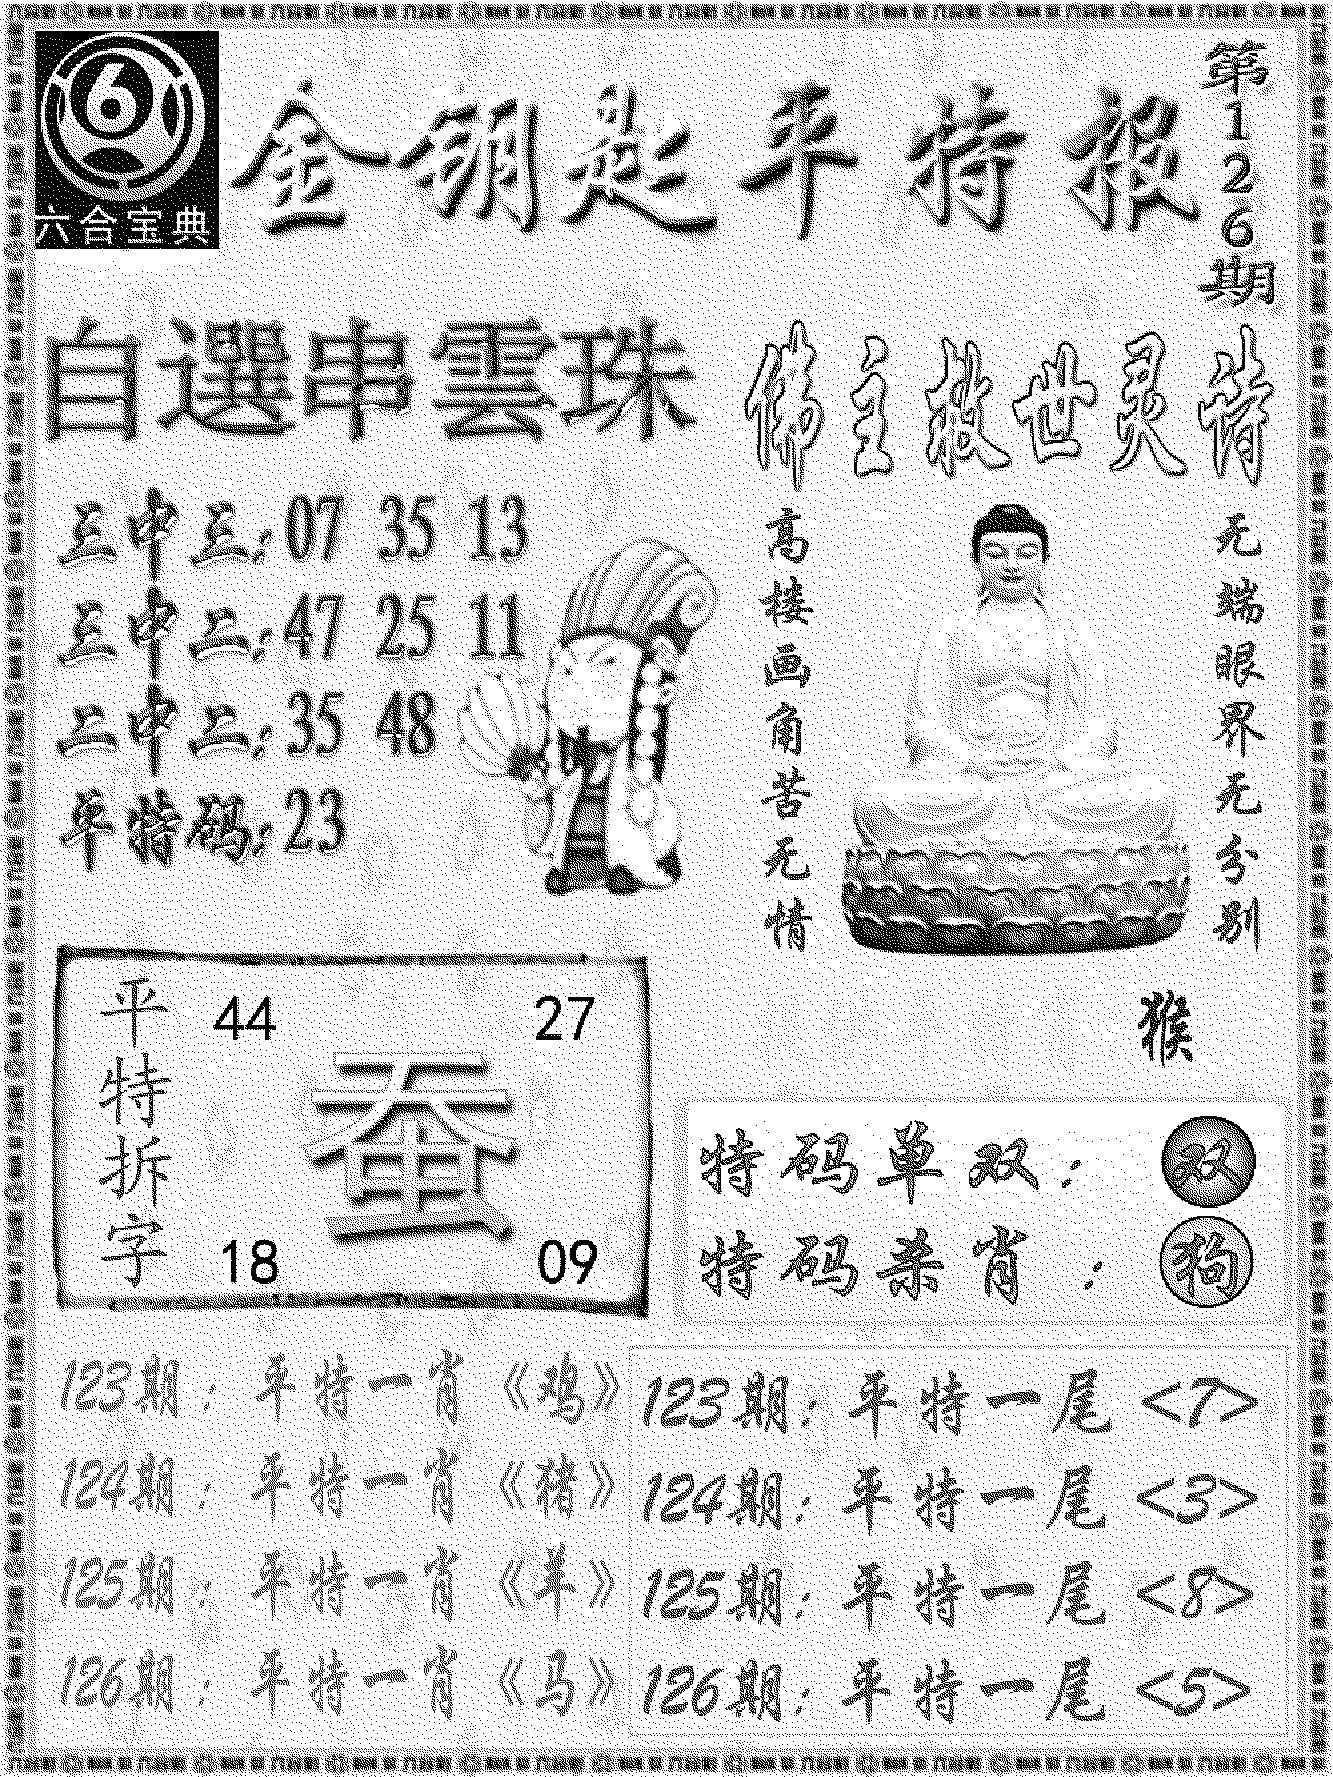 六合宝典
金钥匙平特报
第126期
自選串雲珠
三中三:07 35 13
三中二:47 25 11
二中二:35 48
平特码:23
佛主救世灵诗
高楼画角苦无情
无端眼界无分别
猴
平特拆字
44 27
蚕
18 09
特码单双: 双
特码杀肖: 狗
123期: 平特一肖《鸡》
124期: 平特一肖《猪》
125期: 平特一肖《羊》
126期: 平特一肖《马》
123期: 平特一尾 <7>
124期: 平特一尾 <3>
125期: 平特一尾 <8>
126期: 平特一尾 <5>